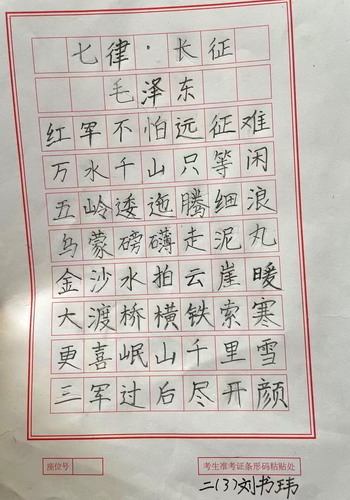 七律·长征
毛泽东
红军不怕远征难
万水千山只等闲
五岭逶迤腾细浪
乌蒙磅礴走泥丸
金沙水拍云崖暖
大渡桥横铁索寒
更喜岷山千里雪
三军过后尽开颜
座位号
考生准考证条形码粘贴处
二(3)刘书玮